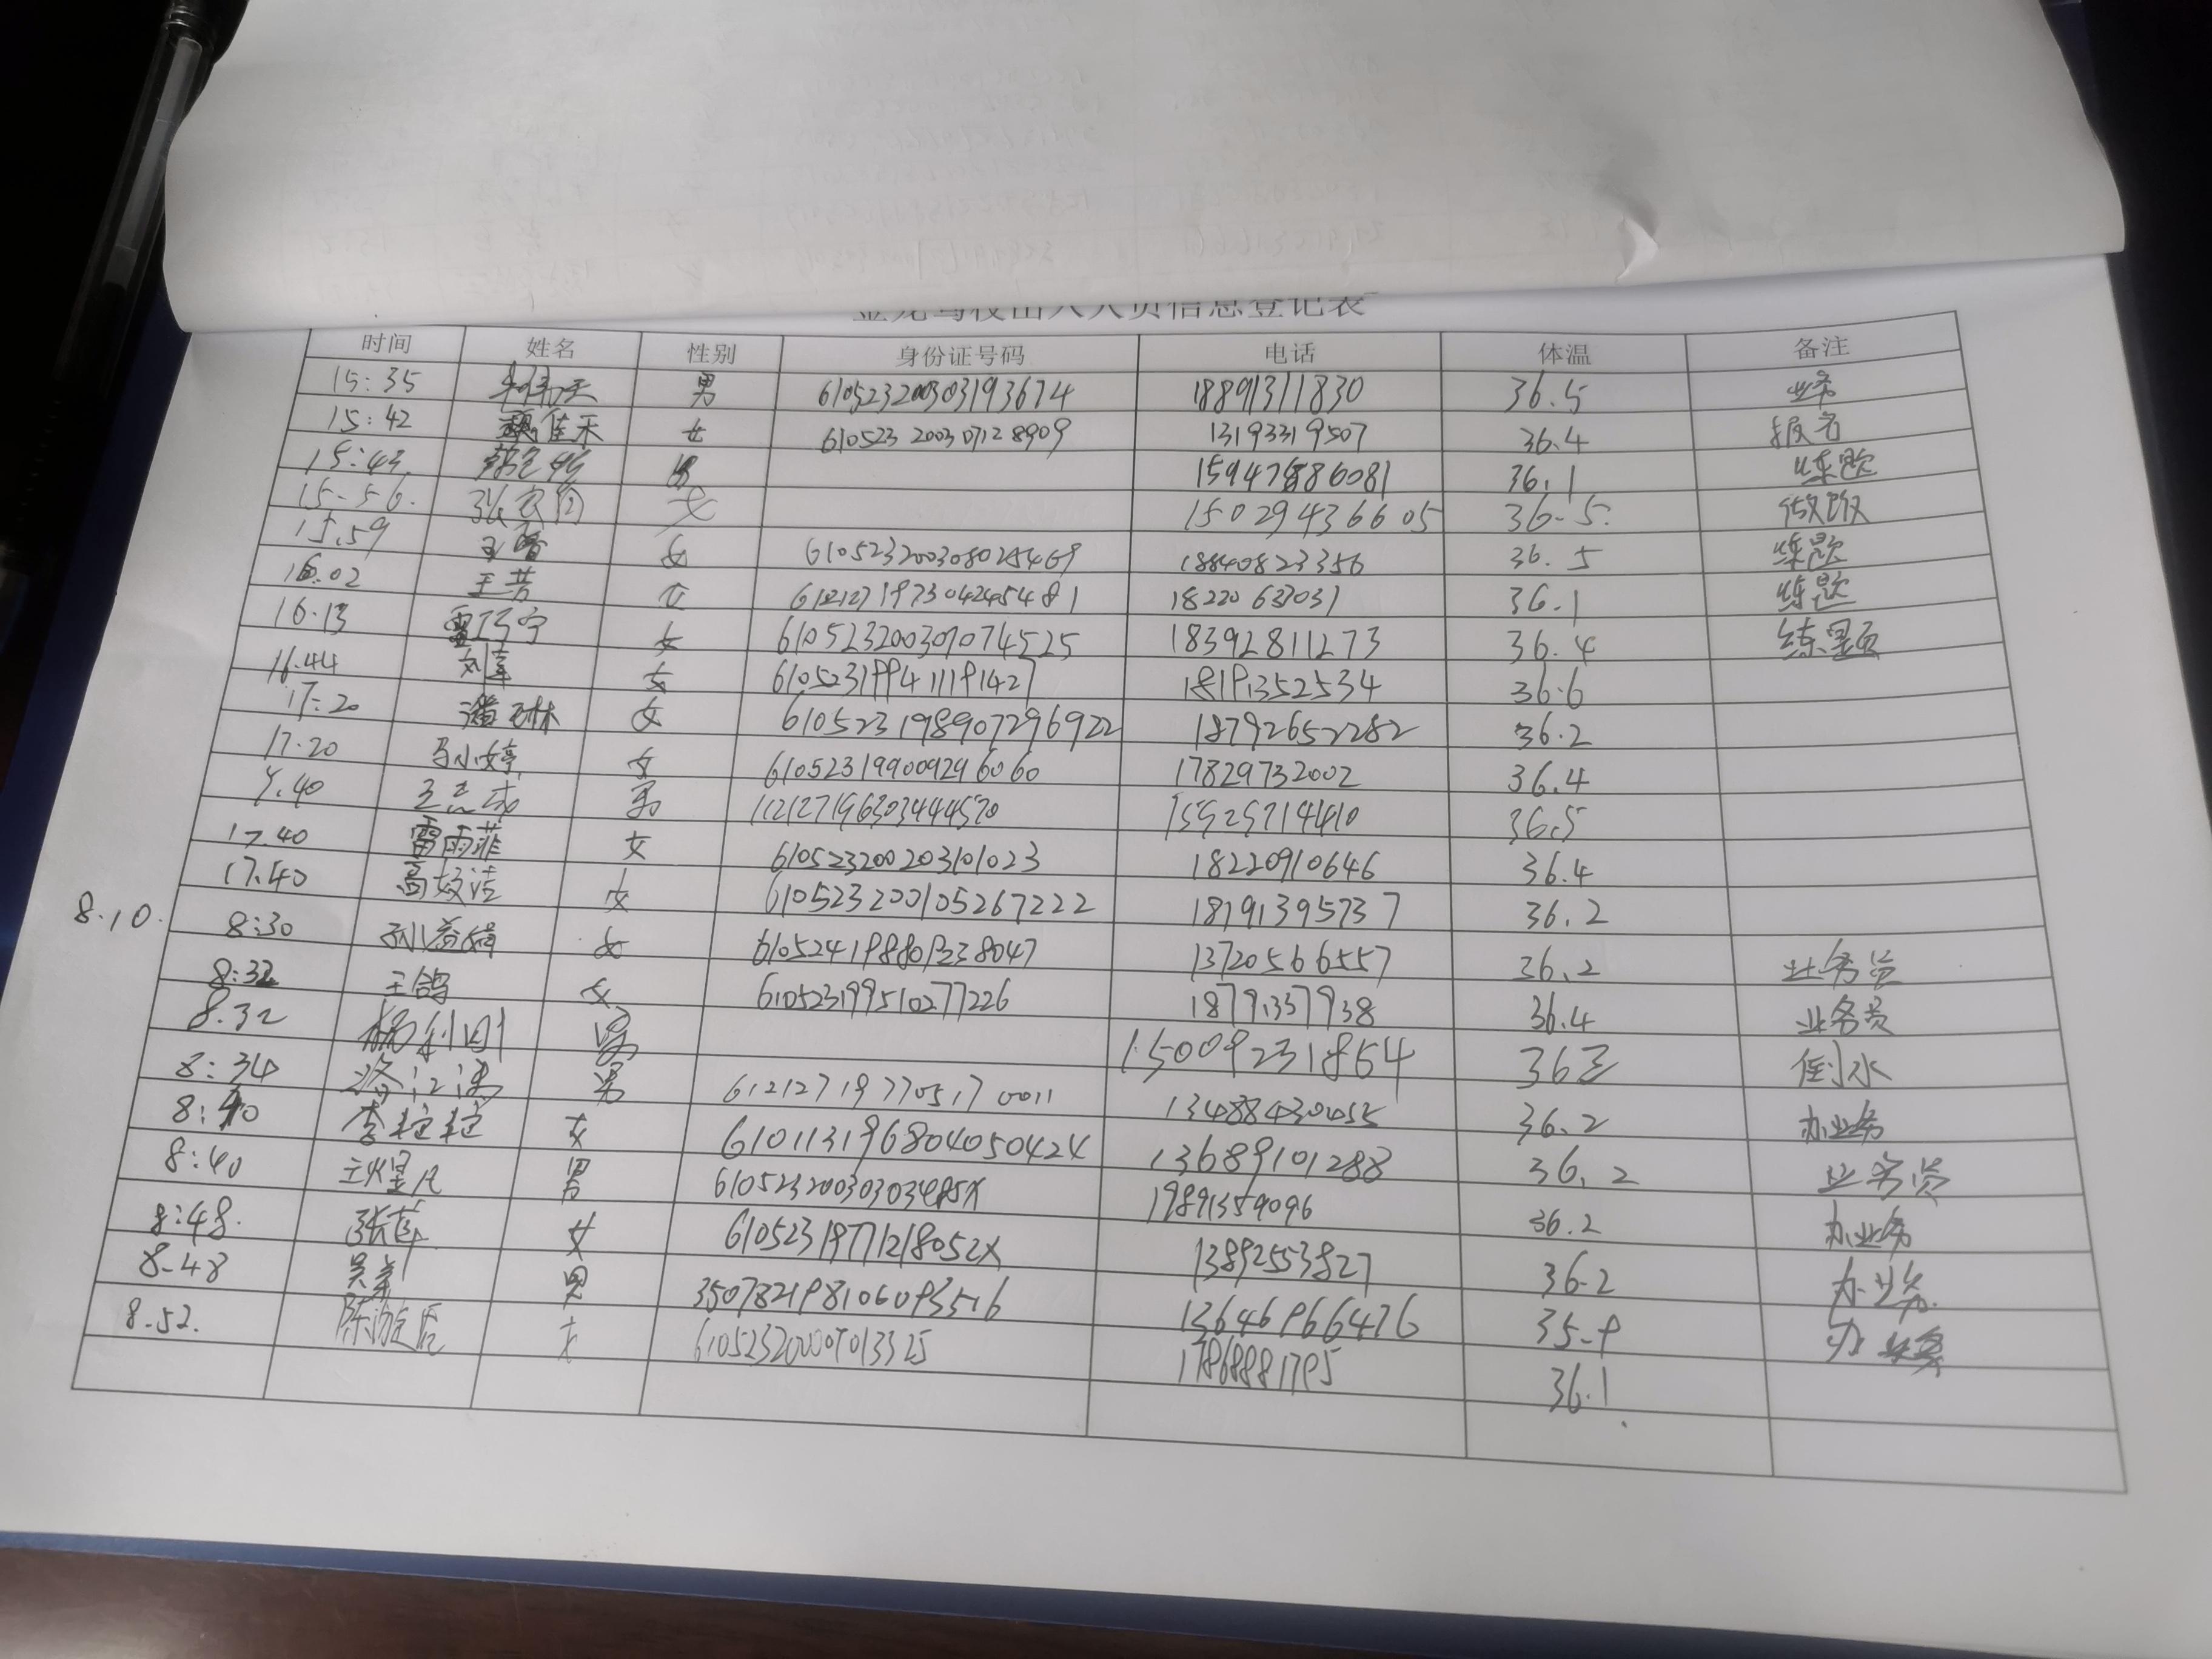 时间 姓名 性别 身份证号码 电话 体温 备注
15:35 男 610523200303193674 18891311830 36.5 业务
15:42 魏佳禾 女 610523200307128909 13193319507 36.4 报名
15:43 男 36.1 练题
15-56. 15029436605 36-5. 做饭
15.59 女 610523200308025469 18840823356 36.5 练题
16.02 王芳 女 18220637031 36.1 练题
16.13 雷巧宁 女 610523200307074525 18392811273 36.4 练题
16.44 女 610523199411191427 18191352534 36.6
17:20 潘琳 女 610523198907296922 18792652282 36.2
17.20 马小婷 女 610523199009296060 17829732002 36.4
男 15929714410 36.5
17.40 雷雨菲 女 610523200203101023 18220910646 36.4
17.40 高姣洁 女 610523200105267222 18191395737 36.2
8.10.
8:30 孙益娟 女 13720566557 36.2 业务员
8:32 王鸽 女 610523199510277226 18791357938 36.4 业务员
8.32 杨利刚 男 15009231864 倒水
8:34 男 612127197705170011 36.2 办业务
8:40 李 女 610113196804050424 13689101288 36.2 业务员
8:40 男 61052320030303485X 19891359096 36.2 办业务
8:48. 张萍 女 61052319771218052X 13892553827 36.2 办业务
8-48 吴 男 350782198106093516 13646966476 35-9 办业务
8-52. 陈 女 17868881795 36.1